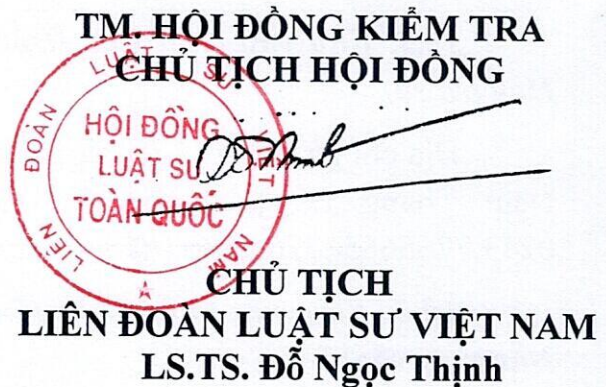 TM. HỘI ĐỒNG KIỂM TRA
CHỦ TỊCH HỘI ĐỒNG
LIÊN ĐOÀN LUẬT SƯ VIỆT NAM
HỘI ĐỒNG
LUẬT SƯ
TOÀN QUỐC
CHỦ TỊCH
LIÊN ĐOÀN LUẬT SƯ VIỆT NAM
LS.TS. Đỗ Ngọc Thịnh